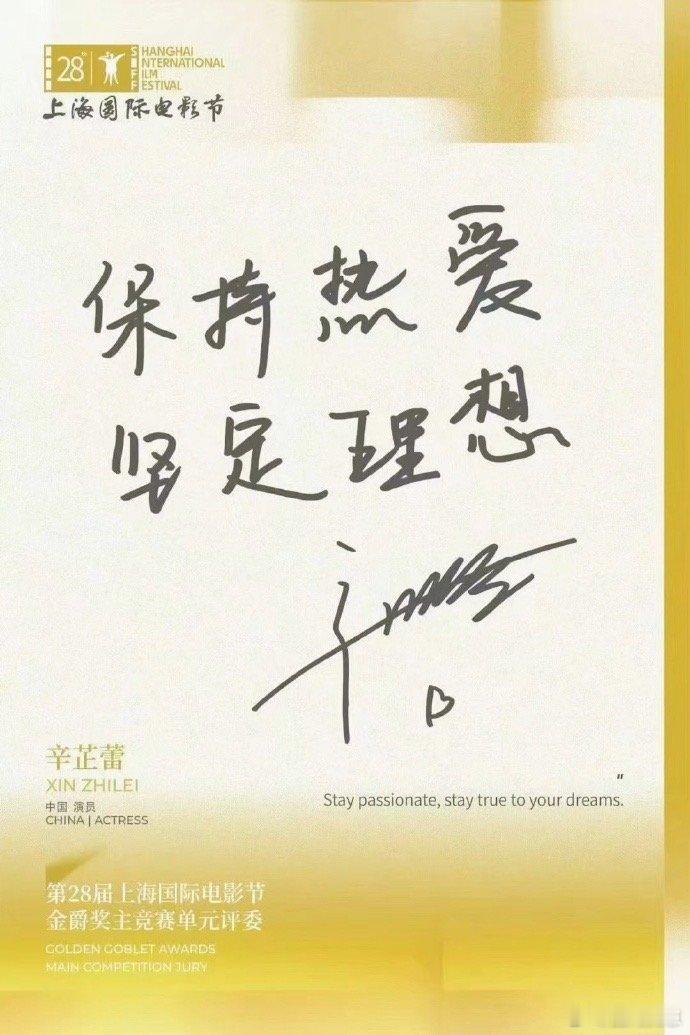 28th
SIFF
SHANGHAI
INTERNATIONAL
FILM
FESTIVAL
上海国际电影节
保持热爱
坚定理想
辛芷蕾
XIN ZHILEI
中国 演员
CHINA | ACTRESS
"
Stay passionate, stay true to your dreams.
第28届上海国际电影节
金爵奖主竞赛单元评委
GOLDEN GOBLET AWARDS
MAIN COMPETITION JURY